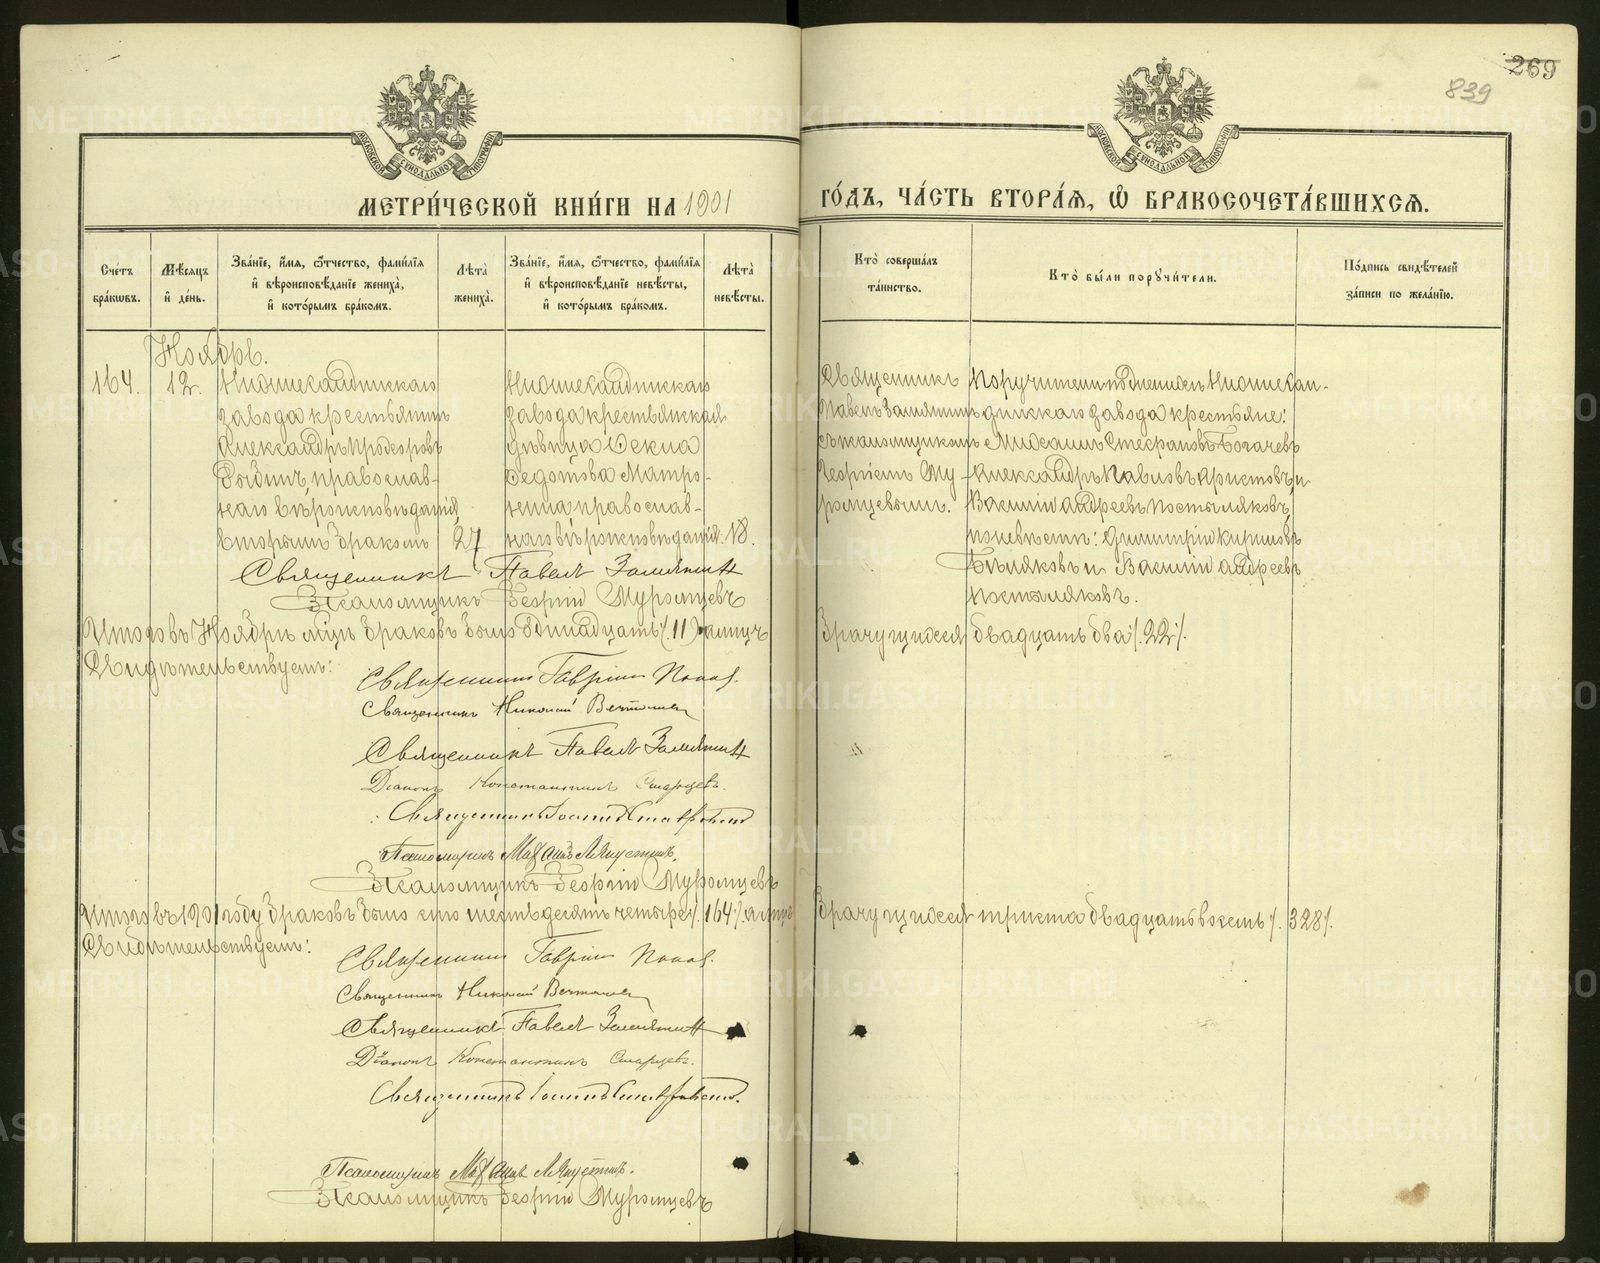 269
839
МЕТРИ́ЧЕСКОЙ КНИ́ГИ НА 1901 ГО́ДЪ, ЧА́СТЬ ВТОРА́Я, Ѡ҆ БРАКОСОЧЕТА́ВШИХСЯ.
Сче́тъ бра́кѡвъ.
Мѣ́сяцъ и҆ де́нь.
Зва́нїе, и҆́мя, ѻ҆́тчество, фами́лїя и҆ вѣроисповѣ́данїе жениха̀, и҆ кото́рымъ бра́комъ.
Лѣта̀ жениха̀.
Зва́нїе, и҆́мя, ѻ҆́тчество, фами́лїя и҆ вѣроисповѣ́данїе невѣ́сты, и҆ кото́рымъ бра́комъ.
Лѣта̀ невѣ́сты.
Кто̀ соверша́лъ та́инство.
Кто̀ бы́ли порꙋчи́тели.
По́дпись свидѣ́телей за́писи по жела́нїю.
Ноябрь.
164.
12.
Нижнесалдинскаго
завода крестьянинъ
Александръ Прохоровъ
православ-
наго вѣроисповѣданія,
вторымъ бракомъ
27
Нижнесалдинскаго
завода крестьянская
дѣвица Ѳекла
Ѳедотова
православ-
наго вѣроисповѣданія.
18.
Священникъ
Павелъ Замятинъ
съ псаломщикомъ
Георгіемъ Му-
ромцевымъ.
Поручители по женихѣ: Нижнесал-
динскаго завода крестьяне:
Михаилъ Стефановъ Богачевъ
Александръ Павловъ Аристовъ и
Василій Андреевъ Постыляковъ,
по невѣстѣ: Димитрій Кириловъ
и Василій Андреевъ
Постыляковъ.
Священникъ Павелъ Замятинъ
Псаломщикъ Георгій Муромцевъ
Итого въ Ноябрѣ мѣсц. браковъ было одинадцать (11) а лицъ
брачущихся двадцать два /.22/.
Свидѣтельствуемъ:
Священникъ Гавріилъ Попов.
Священникъ Николай
Священникъ Павелъ Замятинъ
Діаконъ Константинъ Старцевъ.
Священникъ Іоаннъ
Псаломщикъ
Псаломщикъ Георгій Муромцевъ
Итого въ 1901 году браковъ было сто шестьдесятъ четыре /.164/. а лицъ
брачущихся триста двадцать восемь /. 328/.
Свидѣтельствуемъ:
Священникъ Гавріилъ Попов.
Священникъ Николай
Священникъ Павелъ Замятинъ
Діаконъ Константинъ Старцевъ.
Священникъ Іоаннъ
Псаломщикъ
Псаломщикъ Георгій Муромцевъ
METRIKI.GASO-URAL.RU